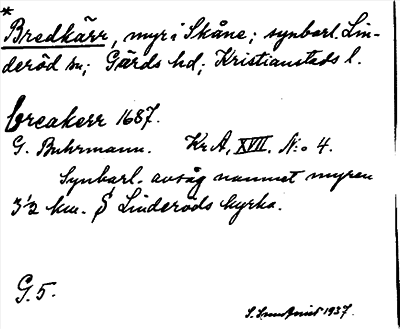 *
Bredkärr, myr i Skåne; synbarl. Lin-
deröd sn; Gärds hd; Kristianstads l.
breakerr 1687.
G. Buhrmann. Kr A, XVII. N:o 4.
Synbarl. avsåg namnet myren
3 1/2 km. S Linderöds kyrka.
G. 5.
S. Sundqvist 1937.